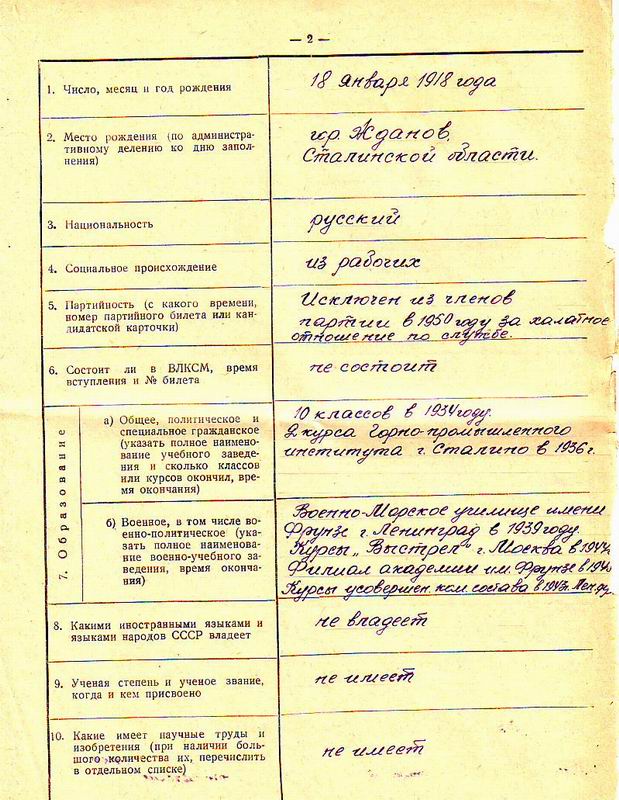 — 2 —
1. Число, месяц и год рождения
18 января 1918 года
2. Место рождения (по администра-
тивному делению ко дню запол-
нения)
гор. Жданов,
Сталинской области.
3. Национальность
русский
4. Социальное происхождение
из рабочих
5. Партийность (с какого времени,
номер партийного билета или кан-
дидатской карточки)
Исключен из членов
партии в 1950 году за халатное
отношение по службе.
6. Состоит ли в ВЛКСМ, время
вступления и № билета
не состоит
7. Образование
а) Общее, политическое и
специальное гражданское
(указать полное наимено-
вание учебного заведе-
ния и сколько классов
или курсов окончил, вре-
мя окончания)
10 классов в 1934 году.
2 курса Горно-промышленного
института г. Сталино в 1936 г.
б) Военное, в том числе во-
енно-политическое (ука-
зать полное наименова-
ние военно-учебного за-
ведения, время оконча-
ния)
Военно-Морское училище имени
Фрунзе г. Ленинград в 1939 году.
Курсы „Выстрел" г. Москва в
Филиал академии им. Фрунзе в
Курсы усовершен. ком. состава в
8. Какими иностранными языками и
языками народов СССР владеет
не владеет
9. Ученая степень и ученое звание,
когда и кем присвоено
не имеет
10. Какие имеет научные труды и
изобретения (при наличии боль-
шого количества их, перечислить
в отдельном списке)
не имеет